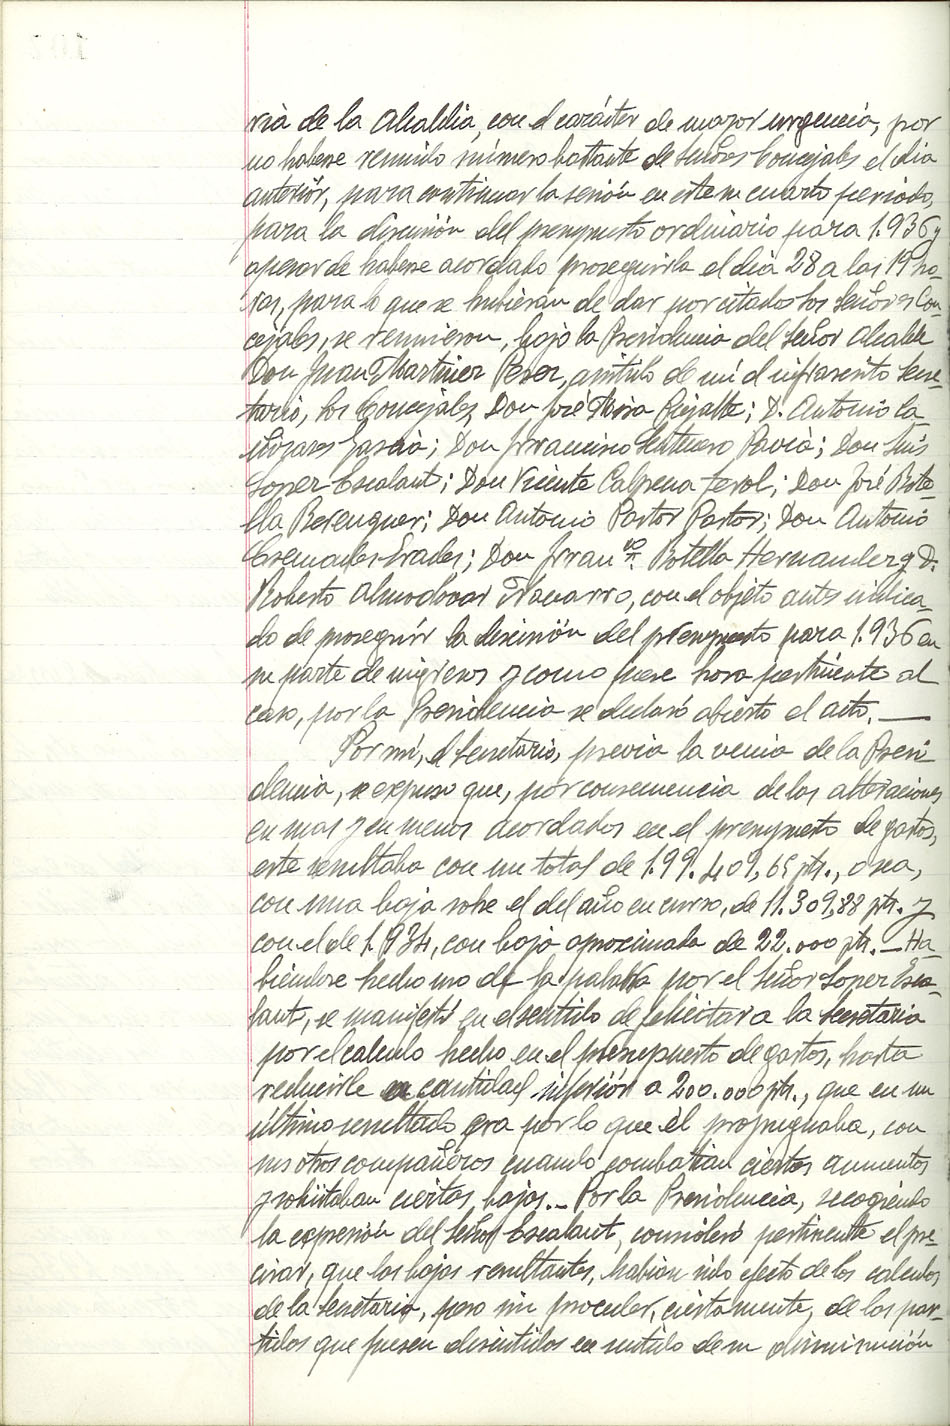 ria de la Alcaldia, con el carácter de mayor urgencia, por
no haberse reunido número bastante de señores Concejales el dia
anterior, para continuar la sesión en este su cuarto periodo,
para la discusión del presupuesto ordinario para 1.936 y
apesar de haberse acordado proseguirla el dia 28 a las 19 ho-
ras, para lo que se hubieran de dar por citados los señores Con-
cejales, se reunieron, bajo la Presidencia del Señor Alcalde
Don Juan Martinez Perez, asistido de mi el infrascrito Secre-
tario, los Concejales, Don José Mira ; D. Antonio Ca-
ñizares Garcia; Don Francisco Santuero Pavia; Don Luis
Lopez Escalant; Don Vicente Calpena Ferol; Don José Bote-
lla Berenguer; Don Antonio Pastor Pastor; Don Antonio
Cremades Erades; Don Fran co Botella Hernandez y D.
Roberto Almodovar Navarro, con el objeto antes indica-
do de proseguir la discusión del presupuesto para 1.936 en
su parte de ingresos y como fuese hora pertinente al
caso, por la Presidencia se declaró abierto el acto.—
Por mi, el Secretario, previa la venia de la Presi-
dencia, se expuso que, por consecuencia de las alteraciones
en mas y en menos acordados en el presupuesto de gastos,
este resultaba con un total de 199.409,65 pts., o sea,
con una baja sobre el del año en curso, de 11.309,88 pts. y
con el de 1.934, con baja aproximada de 22.000 pts. — Ha-
biendose hecho uso de la palabra por el señor Lopez Esca-
lant, se manifestó en el sentido de felicitar a la Secretaria
por el calculo hecho en el presupuesto de gastos, hasta
reducirle en cantidad inferior a 200.000 pts., que en un
último resultado era por lo que él propugnaba, con
sus otros compañeros cuando combatian ciertos aumentos
y solicitaban ciertas bajas.— Por la Presidencia, recogiendo
la expresión del señor Escalant, consideró pertinente el pre-
cisar, que las bajas resultantes, habian sido efecto de los calculos
de la Secretaria, pero sin proceder, ciertamente, de los par-
tidos que fuesen discutidos en sentido de su disminución